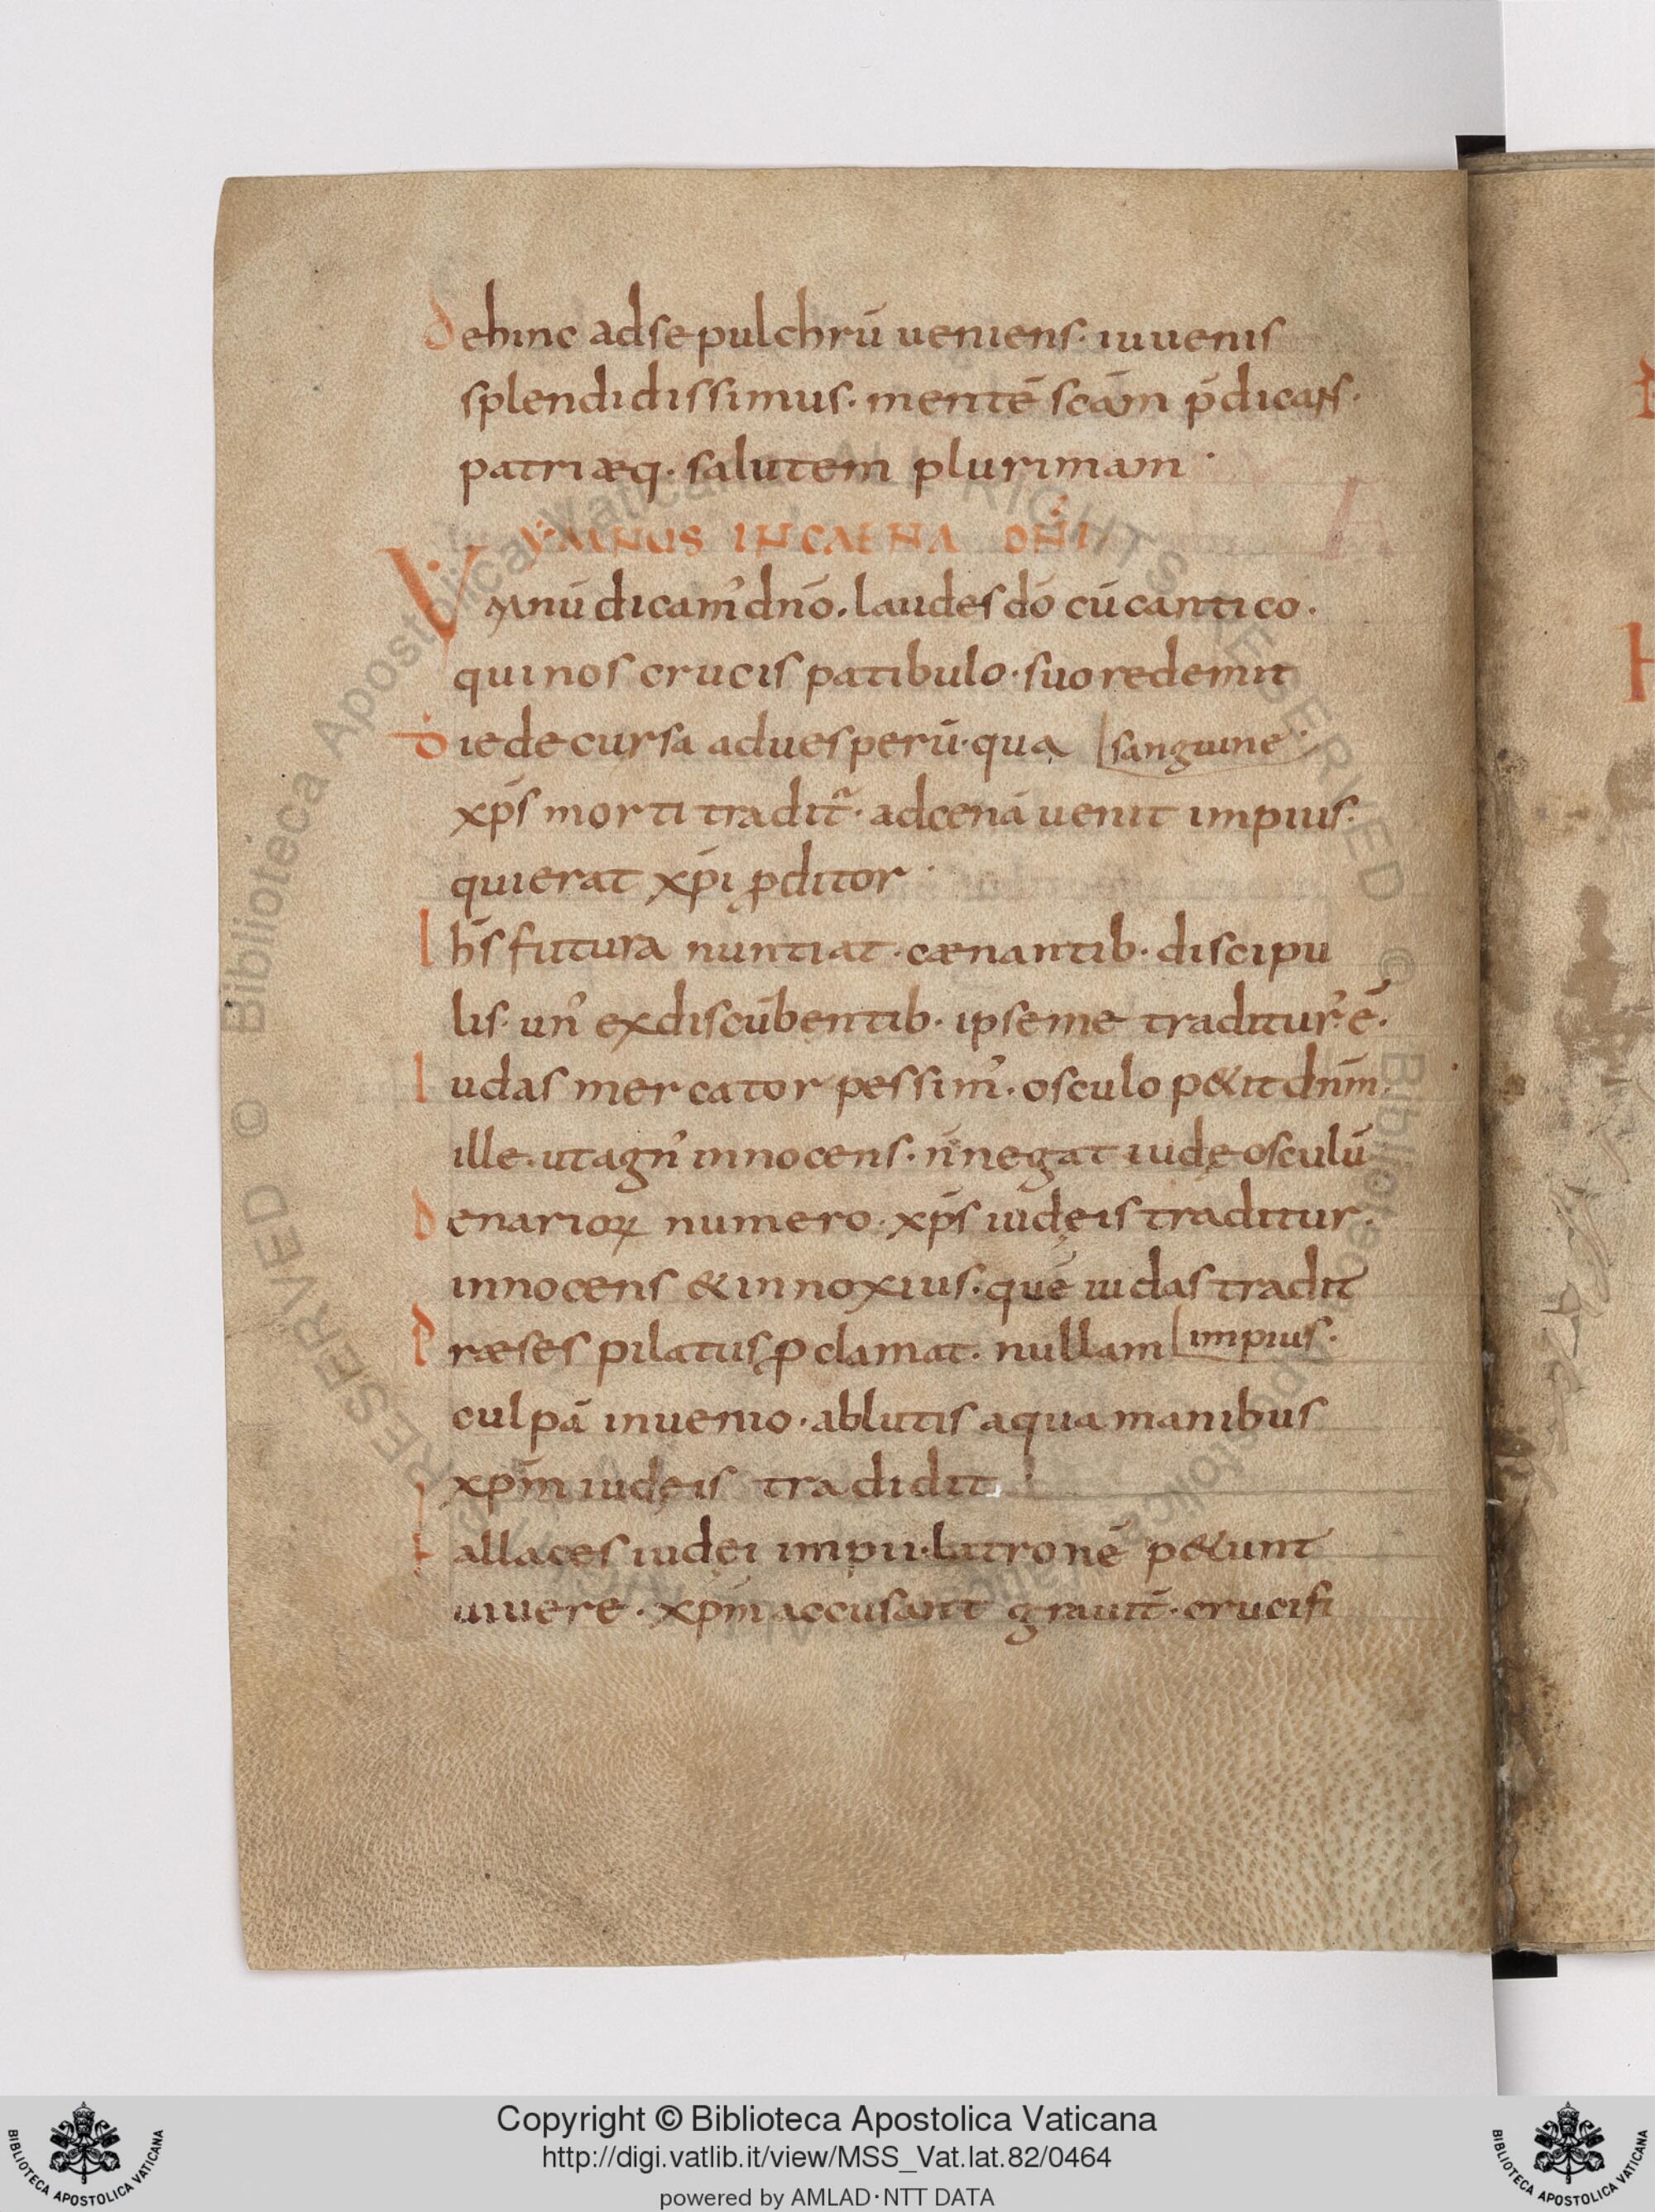 dehinc adsepulchrū ueniens· iuuenis
splendidissimus· mentē scām p̄dicans·
patriæq· salutem plurimam ·
YMNUS IN CAENA DN̄I
Ymnū dicam᾿ dnō. laudes dō cū cantico.
qui nos crucis patibulo· suo redemit
die decursa aduesperū· qua sanguine·
xp̄s morti tradit᷑· adcenā uenit impius·
quierat xp̄i ꝓditor ·
Ih̄s futura nuntiat· cænantib· discipu
lis· un᾿ exdiscūbentib· ipse me traditur᾿ ē·
Iudas mercator pessim᾿· osculo p&it dnm̄·
ille· utagn᾿ innocens· n̄ negat iudę osculū
denarioꝝ numero· xp̄s iudęis traditur·
innocens & innoxius· quē iudas tradit
Præses pilatus ꝓclamat· nullam impius·
culpā inuenio· ablutis aqua manibus
xpm̄ iudęis tradidit·
Fallaces iudęi impii· latronē p&unt
uiuere· xpm̄ accusant grauit̄· crucifi
Copyright © Biblioteca Apostolica Vaticana
http://digi.vatlib.it/view/MSS_Vat.lat.82/0464
powered by AMLAD·NTT DATA
BIBLIOTECA APOSTOLICA VATICANA
BIBLIOTECA APOSTOLICA VATICANA